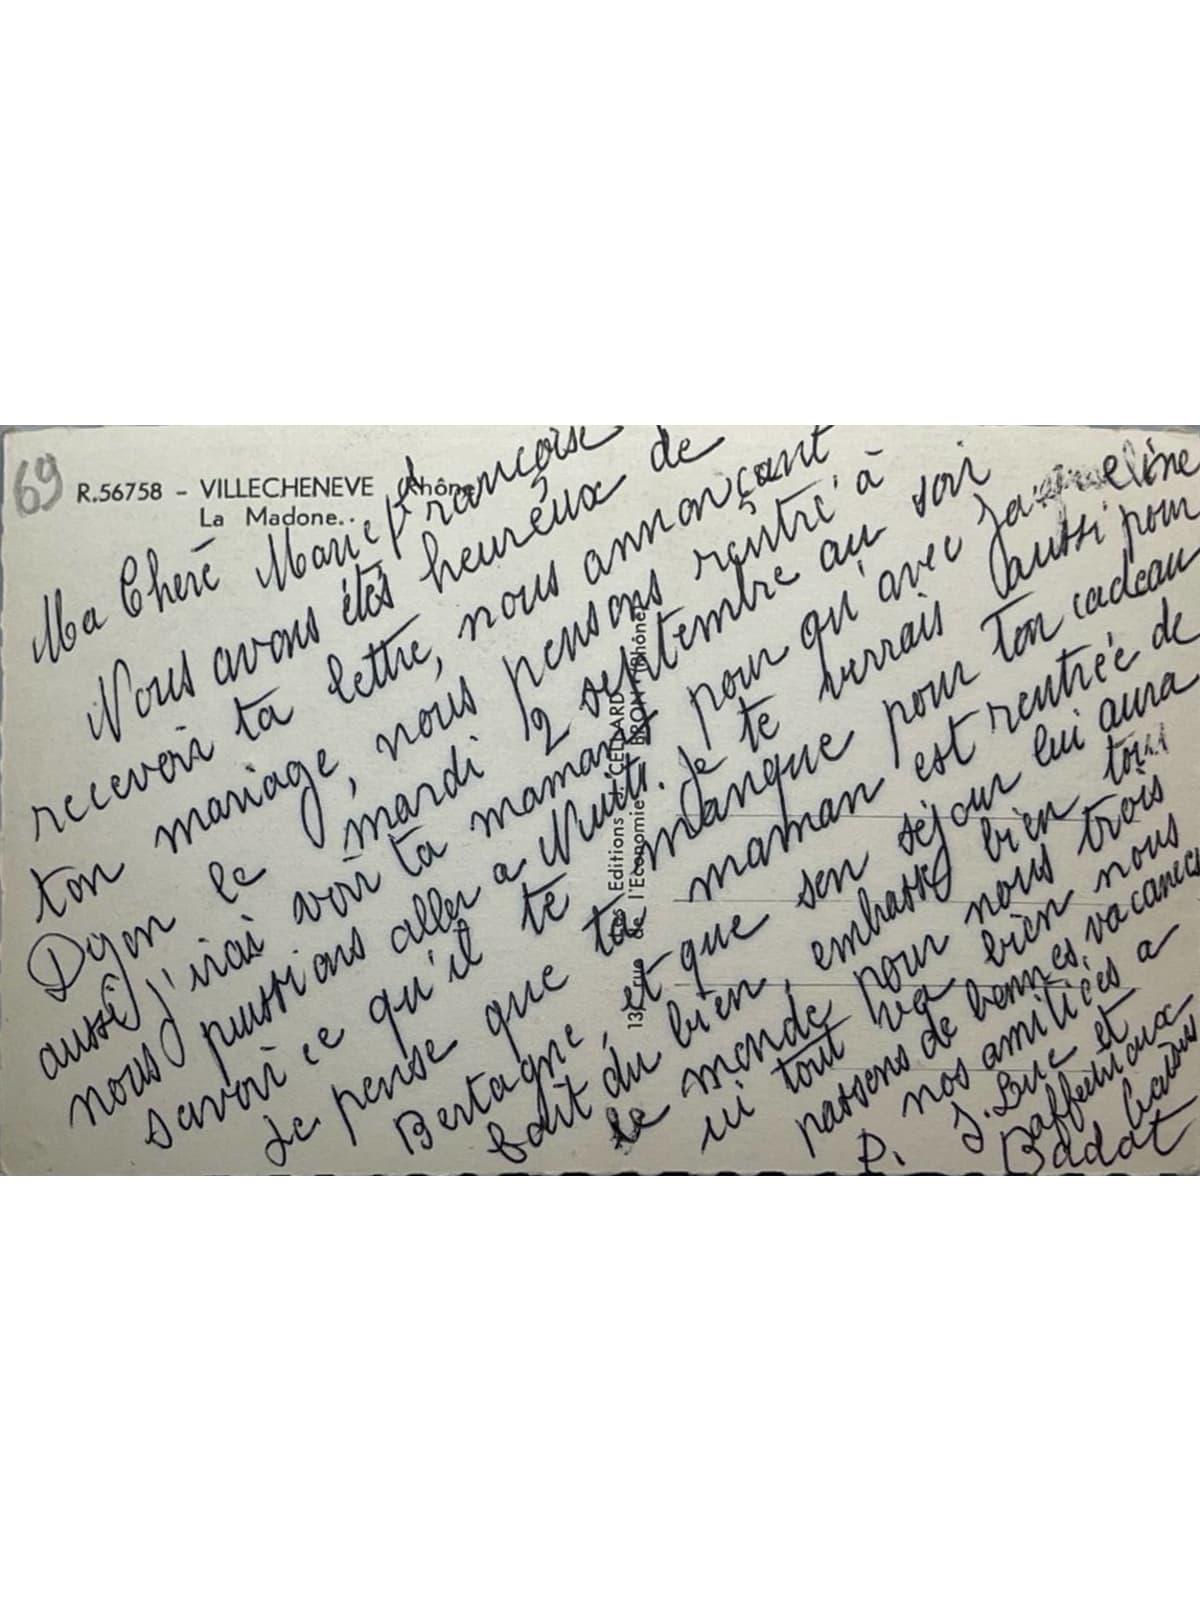 69
R.56758 - VILLECHENEVE (Rhône)
La Madone..
Ma Cheré Marie Françoise
Nous avons étés heuréux de
recevoir ta lettre, nous annonçant
ton mariage, nous pensons rentré à
Dijon le mardi 2 septembre au soir
aussi j'irai voir ta maman pour qu'avec Jacqueline
nous puissions aller a Nuits. Je te verrais aussi pour
savoir ce qu'il te manque pour ton cadeau
Je pense que ta maman est rentrée de
Bertagne, et que son séjour lui aura
fait du bien, embasse bien tout
le monde pour nous trois
ici tout va bien nous
passons de bonnes vacances
nos amitiées a
P. J. Luc et
affectueux baisers
Badat
Les Editions J. CELLARD
137, rue de l'Economie BRON (Rhône)